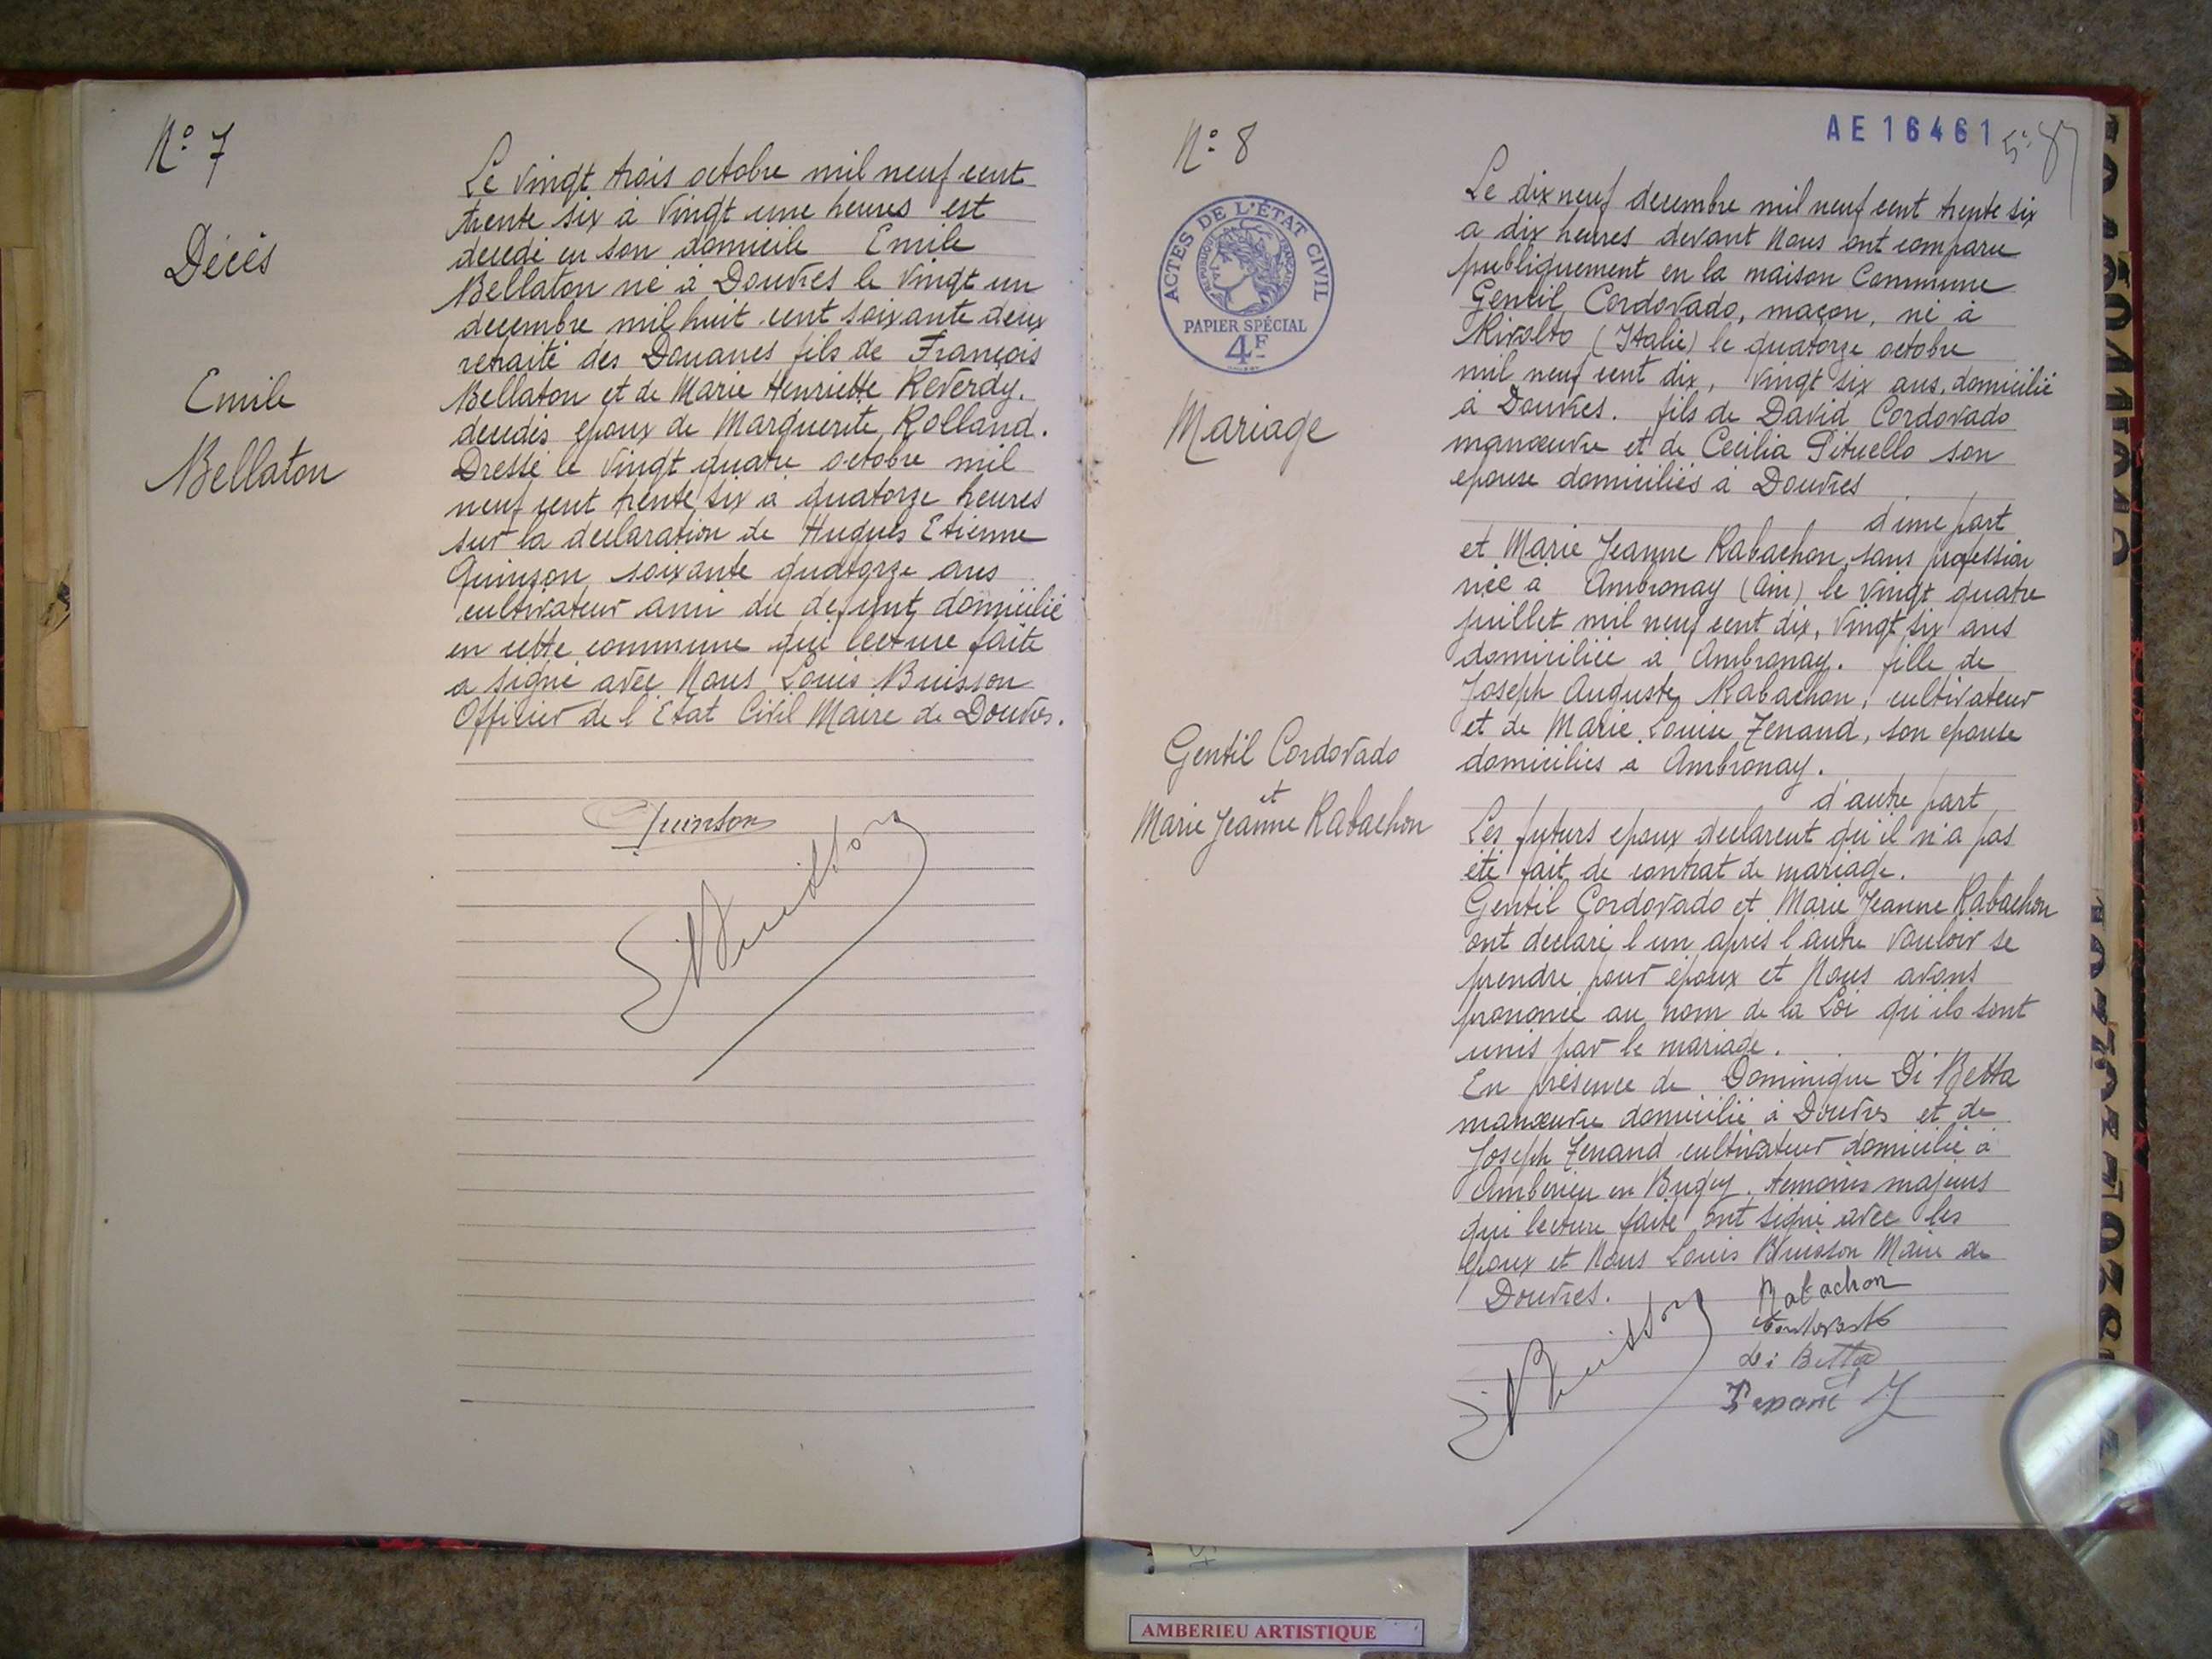 N° 7
Décès
Emile
Bellaton
Le vingt trois octobre mil neuf cent
trente six à vingt une heures est
decedé en son domicile Emile
Bellaton né à Douvres le vingt un
decembre mil huit cent soixante deux
retraité des Douanes fils de François
Bellaton et de Marie Henriette Reverdy.
decedés epoux de Marguerite Rolland.
Dressé le vingt quatre octobre mil
neuf cent trente six à quatorze heures
sur la declaration de Hugues Etienne
Quinson soixante quatorze ans
cultivateur ami du defunt domicilié
en cette commune qui lecture faite
a signé avec Nous Louis Buisson
Officier de l Etat Civil Maire de Douvres.
Quinson
L Buisson
AE 16461
N° 8
ACTES DE L'ÉTAT CIVIL
PAPIER SPÉCIAL
4F
Mariage
Gentil Cordovado
et
Marie Jeanne Rabachon
Le dix neuf decembre mil neuf cent trente six
a dix heures devant Nous ont comparu
publiquement en la maison Commune
Gentil Cordovado, maçon, né à
Rivolto (Italie) le quatorze octobre
mil neuf cent dix, vingt six ans, domicilié
à Douvres. fils de David Cordovado
manœuvre et de Cecilia Pituello son
epouse domiciliés à Douvres
d'une part
et Marie Jeanne Rabachon, sans profession
née à Ambronay (Ain) le vingt quatre
juillet mil neuf cent dix, vingt six ans
domiciliée a Ambronay. fille de
Joseph Auguste Rabachon, cultivateur
et de Marie Louise Zenand, son epouse
domiciliés a Ambronay.
d'autre part
Les futurs epoux declarent qu'il n'a pas
été fait de contrat de mariage.
Gentil Cordovado et Marie Jeanne Rabachon
ont declaré l un après l'autre vouloir se
prendre pour époux et Nous avons
prononcé au nom de la Loi qu'ils sont
unis par le mariage.
En présence de Dominique Di Betta
manœuvre domicilié à Douvres et de
Joseph Zenand cultivateur domicilié à
Amberieu en Bugey. temoins majeurs
qui lecture faite ont signé avec les
epoux et Nous Louis Buisson Maire de
Douvres.
Rabachon
di Betta
L Buisson
AMBERIEU ARTISTIQUE